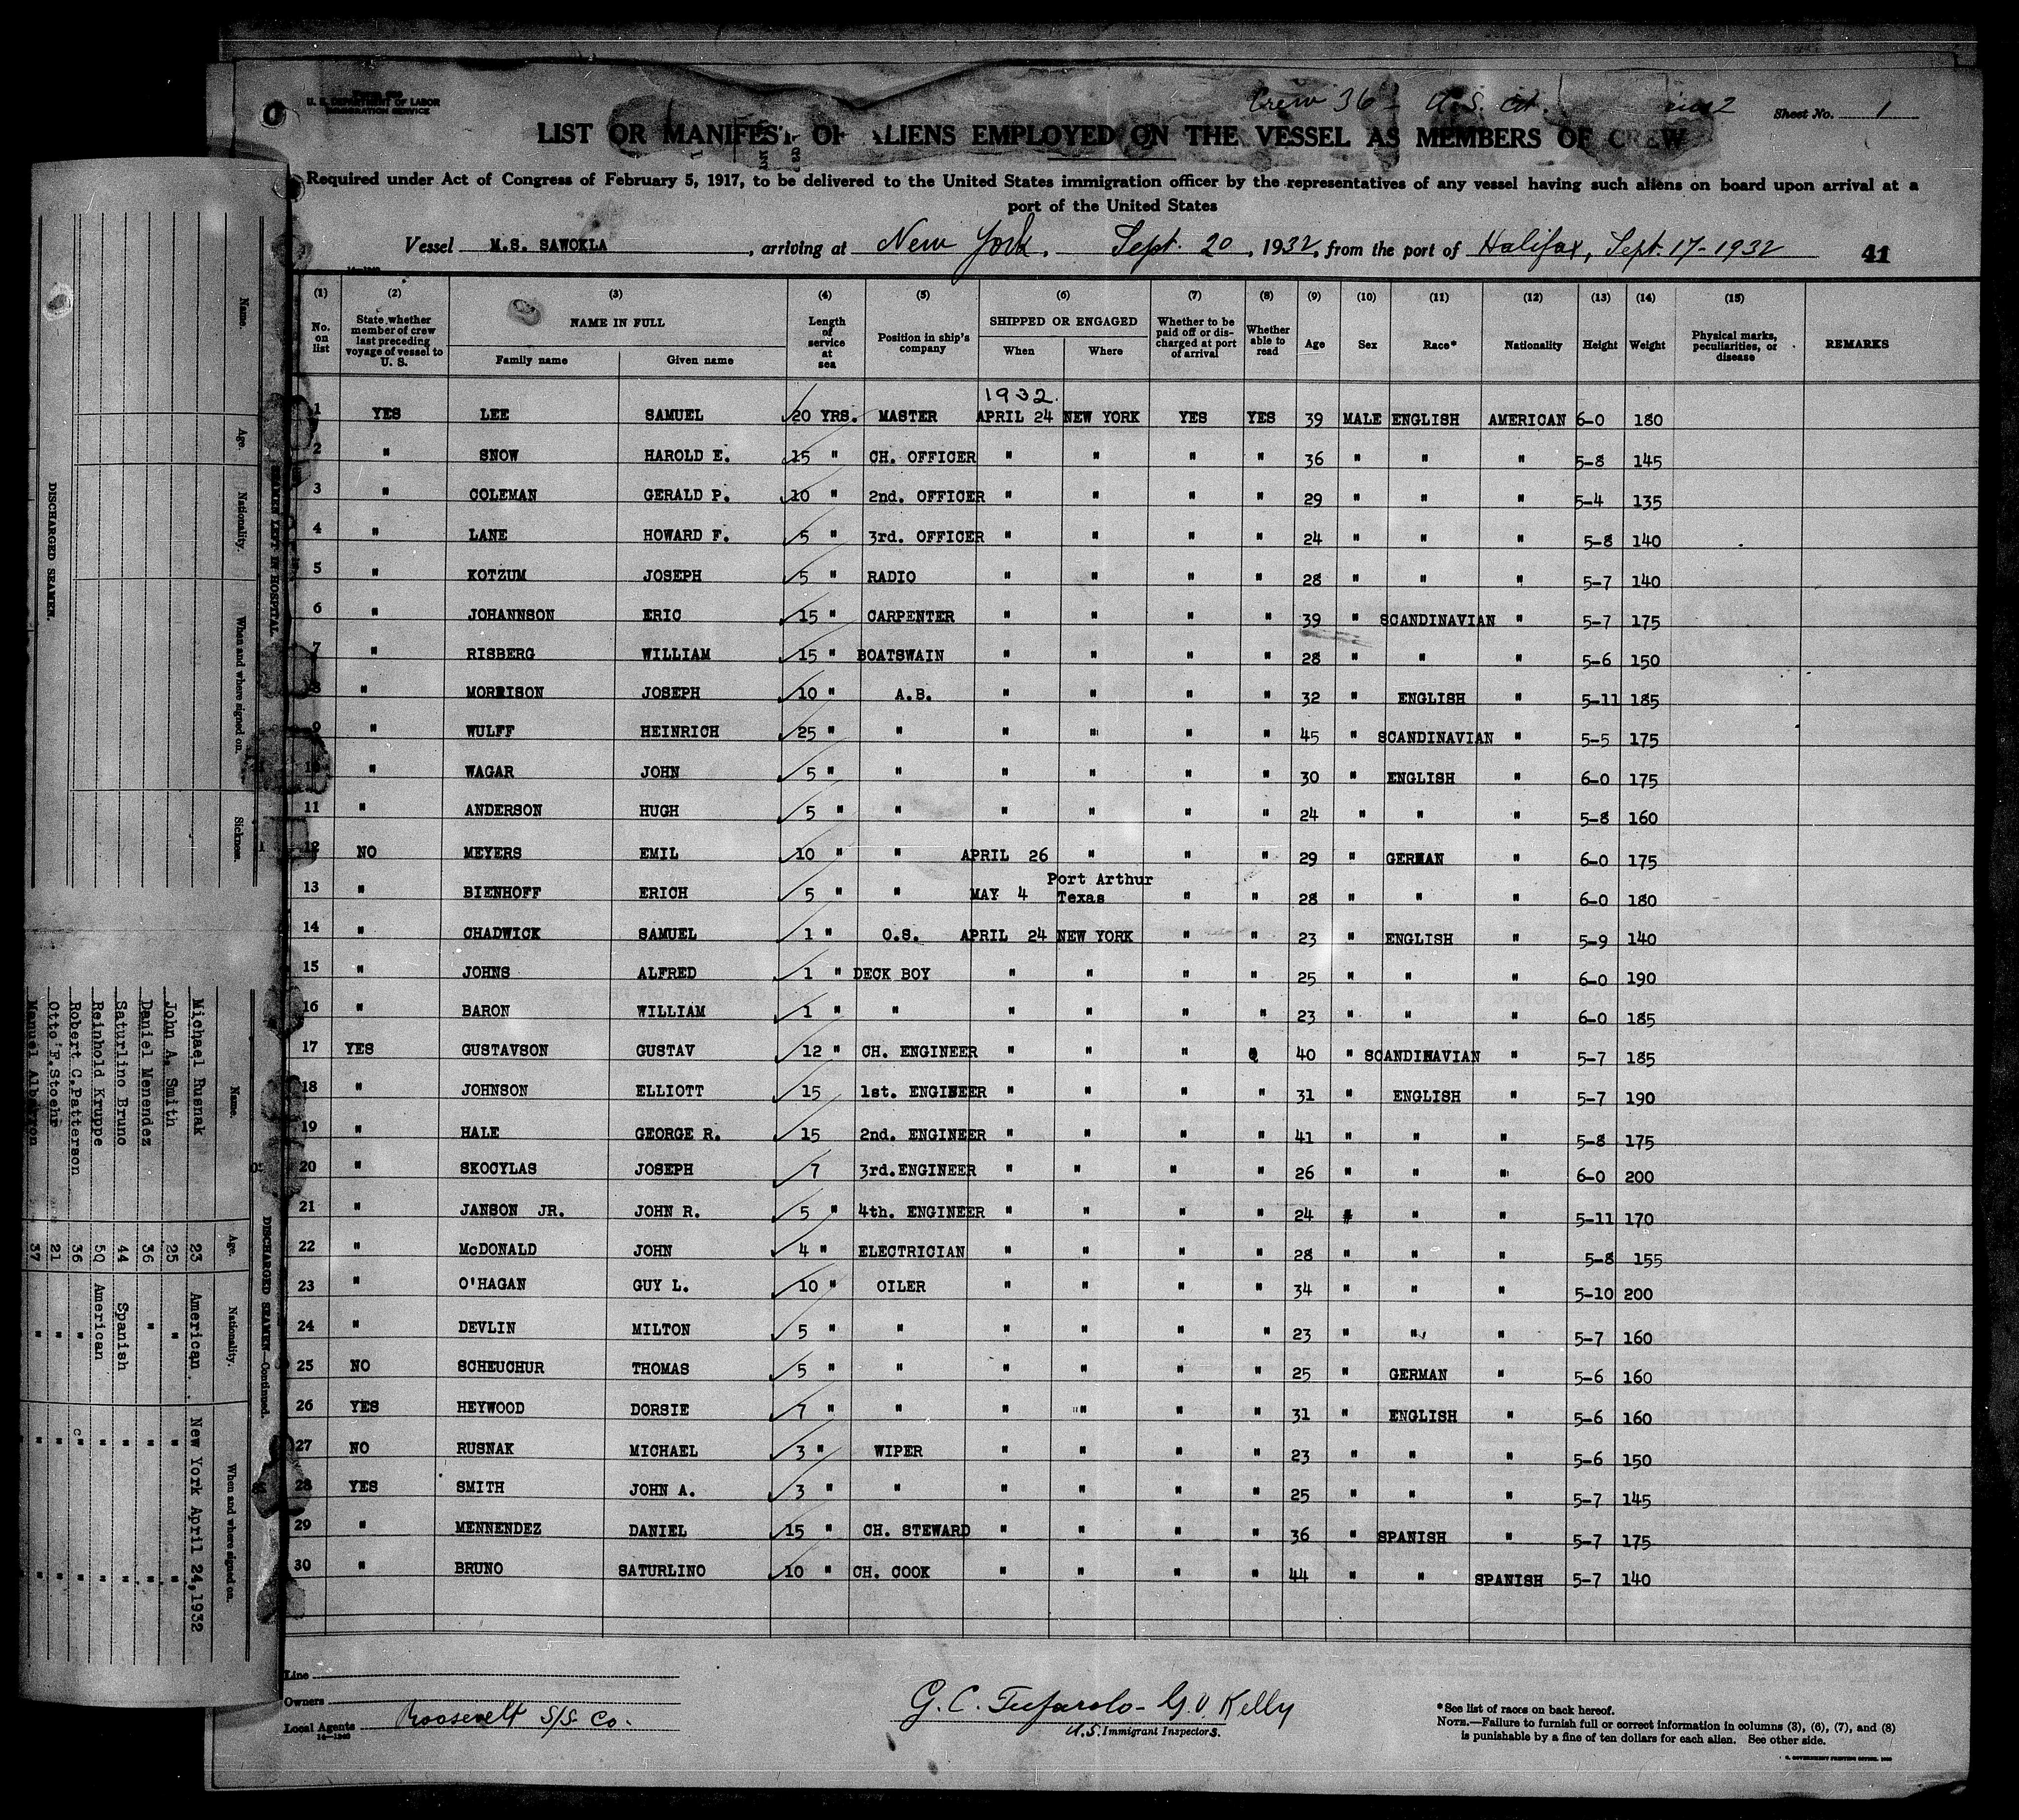 U. S. DEPARTMENT OF LABOR
IMMIGRATION SERVICE
Crew 36 - U.S. cit.
Sheet No. 1
LIST OR MANIFEST OF ALIENS EMPLOYED ON THE VESSEL AS MEMBERS OF CREW
Required under Act of Congress of February 5, 1917, to be delivered to the United States immigration officer by the representatives of any vessel having such aliens on board upon arrival at a
port of the United States
Vessel M.S. SAWOKLA, arriving at New York. Sept. 20, 1932, from the port of Halifax, Sept. 17-1932 41
(1) (2) (3) (4) (5) (6) (7) (8) (9) (10) (11) (12) (13) (14) (15)
No. on list State whether member of crew last preceding voyage of vessel to U. S. NAME IN FULL Family name Given name Length of service at sea Position in ship's company SHIPPED OR ENGAGED When Where Whether to be paid off or discharged at port of arrival Whether able to read Age Sex Race* Nationality Height Weight Physical marks, peculiarities, or disease REMARKS
1932.
1 YES LEE SAMUEL 20 YRS. MASTER APRIL 24 NEW YORK YES YES 39 MALE ENGLISH AMERICAN 6-0 180
2 " SNOW HAROLD E. 15 " CH. OFFICER " " " " 36 " " " 5-8 145
3 " COLEMAN GERALD P. 10 " 2nd. OFFICER " " " " 29 " " " 5-4 135
4 " LANE HOWARD F. 5 " 3rd. OFFICER " " " " 24 " " " 5-8 140
5 " KOTZUM JOSEPH 5 " RADIO " " " " 28 " " " 5-7 140
6 " JOHANNSON ERIC 15 " CARPENTER " " " " 39 " SCANDINAVIAN " 5-7 175
7 " RISBERG WILLIAM 15 " BOATSWAIN " " " " 28 " " " 5-6 150
8 " MORRISON JOSEPH 10 " A.B. " " " " 32 " ENGLISH " 5-11 185
9 " WULFF HEINRICH 25 " " " " " " 45 " SCANDINAVIAN " 5-5 175
10 " WAGAR JOHN 5 " " " " " " 30 " ENGLISH " 6-0 175
11 " ANDERSON HUGH 5 " " " " " " 24 " " " 5-8 160
12 NO MEYERS EMIL 10 " " APRIL 26 " " " 29 " GERMAN " 6-0 175
13 " BIENHOFF ERICH 5 " " MAY 4 Port Arthur Texas " " 28 " " " 6-0 180
14 " CHADWICK SAMUEL 1 " O.S. APRIL 24 NEW YORK " " 23 " ENGLISH " 5-9 140
15 " JOHNS ALFRED 1 " DECK BOY " " " " 25 " " " 6-0 190
16 " BARON WILLIAM 1 " " " " " " 23 " " " 6-0 185
17 YES GUSTAVSON GUSTAV 12 " CH. ENGINEER " " " " 40 " SCANDINAVIAN " 5-7 185
18 " JOHNSON ELLIOTT 15 1st. ENGINEER " " " " 31 " ENGLISH " 5-7 190
19 " HALE GEORGE R. 15 2nd. ENGINEER " " " " 41 " " " 5-8 175
20 " SKOCYLAS JOSEPH 7 3rd.ENGINEER " " " " 26 " " " 6-0 200
21 " JANSON JR. JOHN R. 5 " 4th. ENGINEER " " " " 24 " " " 5-11 170
22 " McDONALD JOHN 4 " ELECTRICIAN " " " " 28 " " " 5-8 155
23 " O'HAGAN GUY L. 10 " OILER " " " " 34 " " " 5-10 200
24 " DEVLIN MILTON 5 " " " " " " 23 " " " 5-7 160
25 NO SCHEUCHUR THOMAS 5 " " " " " " 25 " GERMAN " 5-6 160
26 YES HEYWOOD DORSIE 7 " " " " " " 31 " ENGLISH " 5-6 160
27 NO RUSNAK MICHAEL 3 " WIPER " " " " 23 " " " 5-6 150
28 YES SMITH JOHN A. 3 " " " " " 25 " " " 5-7 145
29 " MENNENDEZ DANIEL 15 " CH. STEWARD " " " " 36 " SPANISH " 5-7 175
30 " BRUNO SATURLINO 10 " CH. COOK " " " " 44 " " SPANISH 5-7 140
Line
Owners
Local Agents Roosevelt S/S Co.
G. C. Tufarolo - G. V. Kelly
U.S. Immigrant Inspectors.
*See list of races on back hereof.
NOTE.—Failure to furnish full or correct information in columns (3), (6), (7), and (8)
is punishable by a fine of ten dollars for each alien. See other side.
SEAMEN LEFT IN HOSPITAL.
Name. Age. Nationality. When and where signed on. Sickness.
DISCHARGED SEAMEN.
DISCHARGED SEAMEN—Continued.
Name. Age. Nationality. When and where signed on.
Michael Rusnak 23 American New York April 24,1932
John A. Smith 25 " " "
Daniel Menendez 36 " " "
Saturlino Bruno 44 Spanish " "
Reinhold Kruppe 50 American " "
Robert C.Patterson 36 " " "
Otto E.Stoehr 21 " " "
Manuel 37 " " "